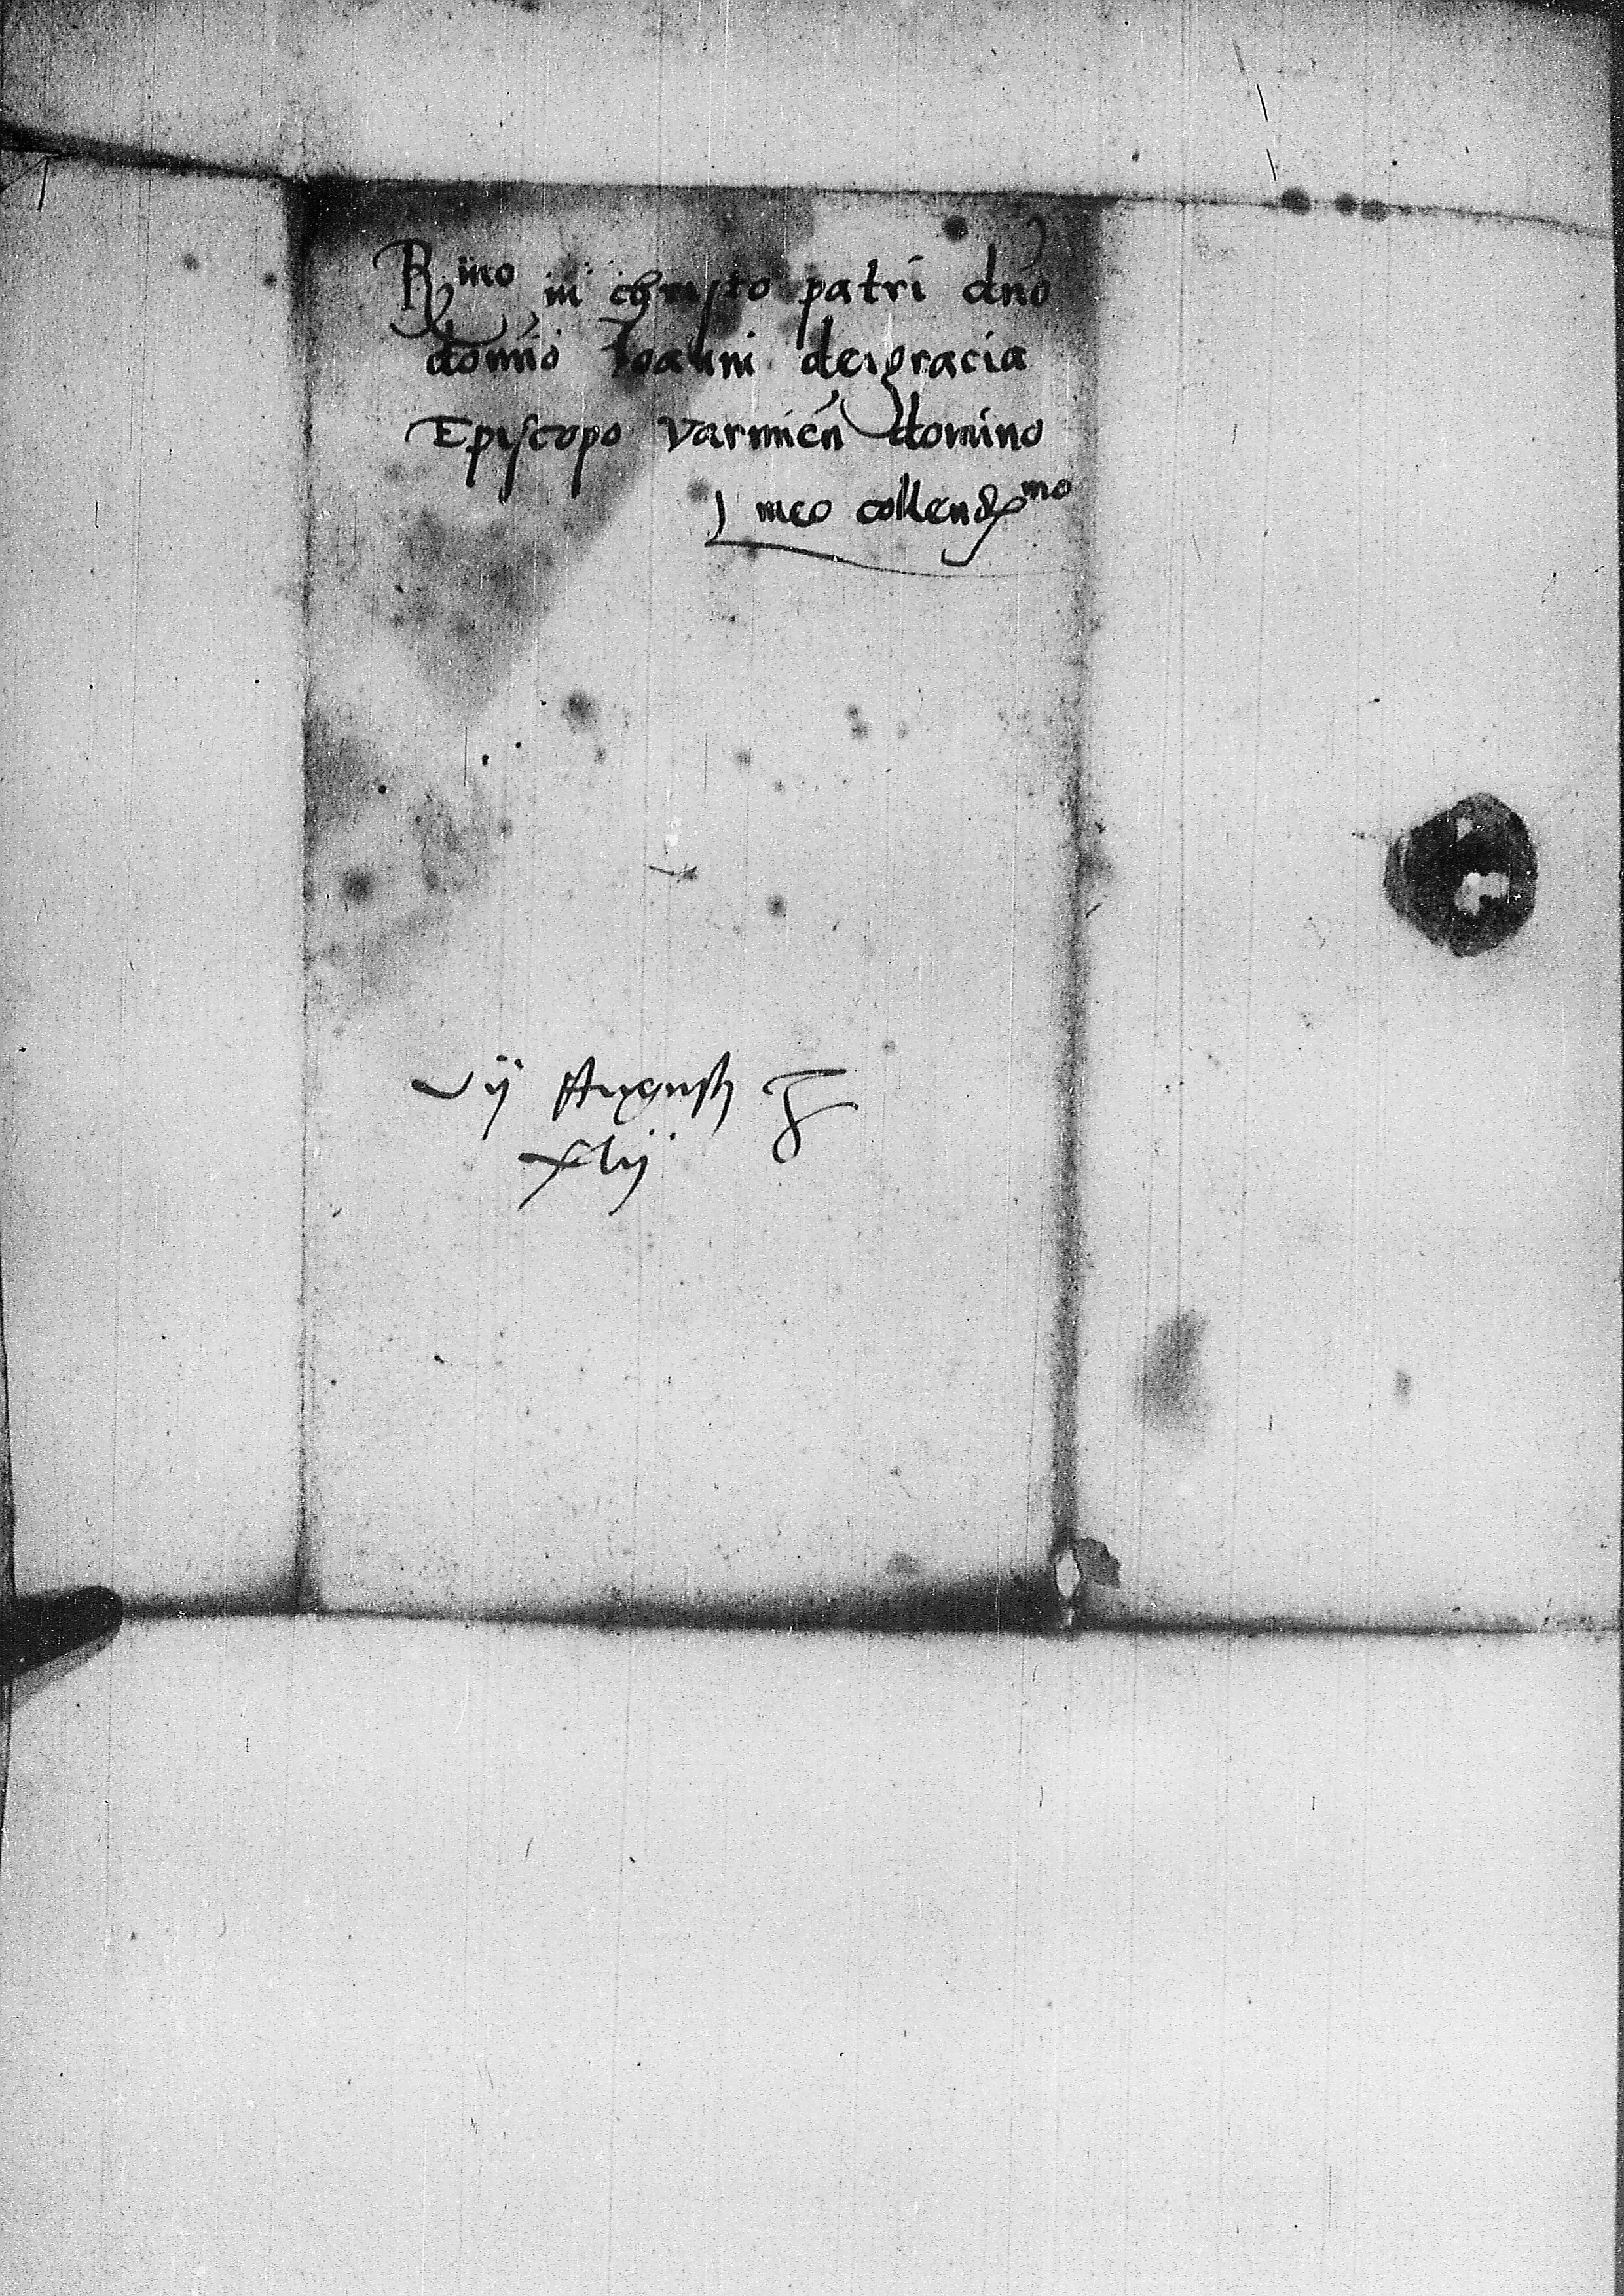 R^mo in christo patri dno
domino Joanni dei gracia
Episcopo Varmien domino
meo collend^mo
vij Augusti
xlij